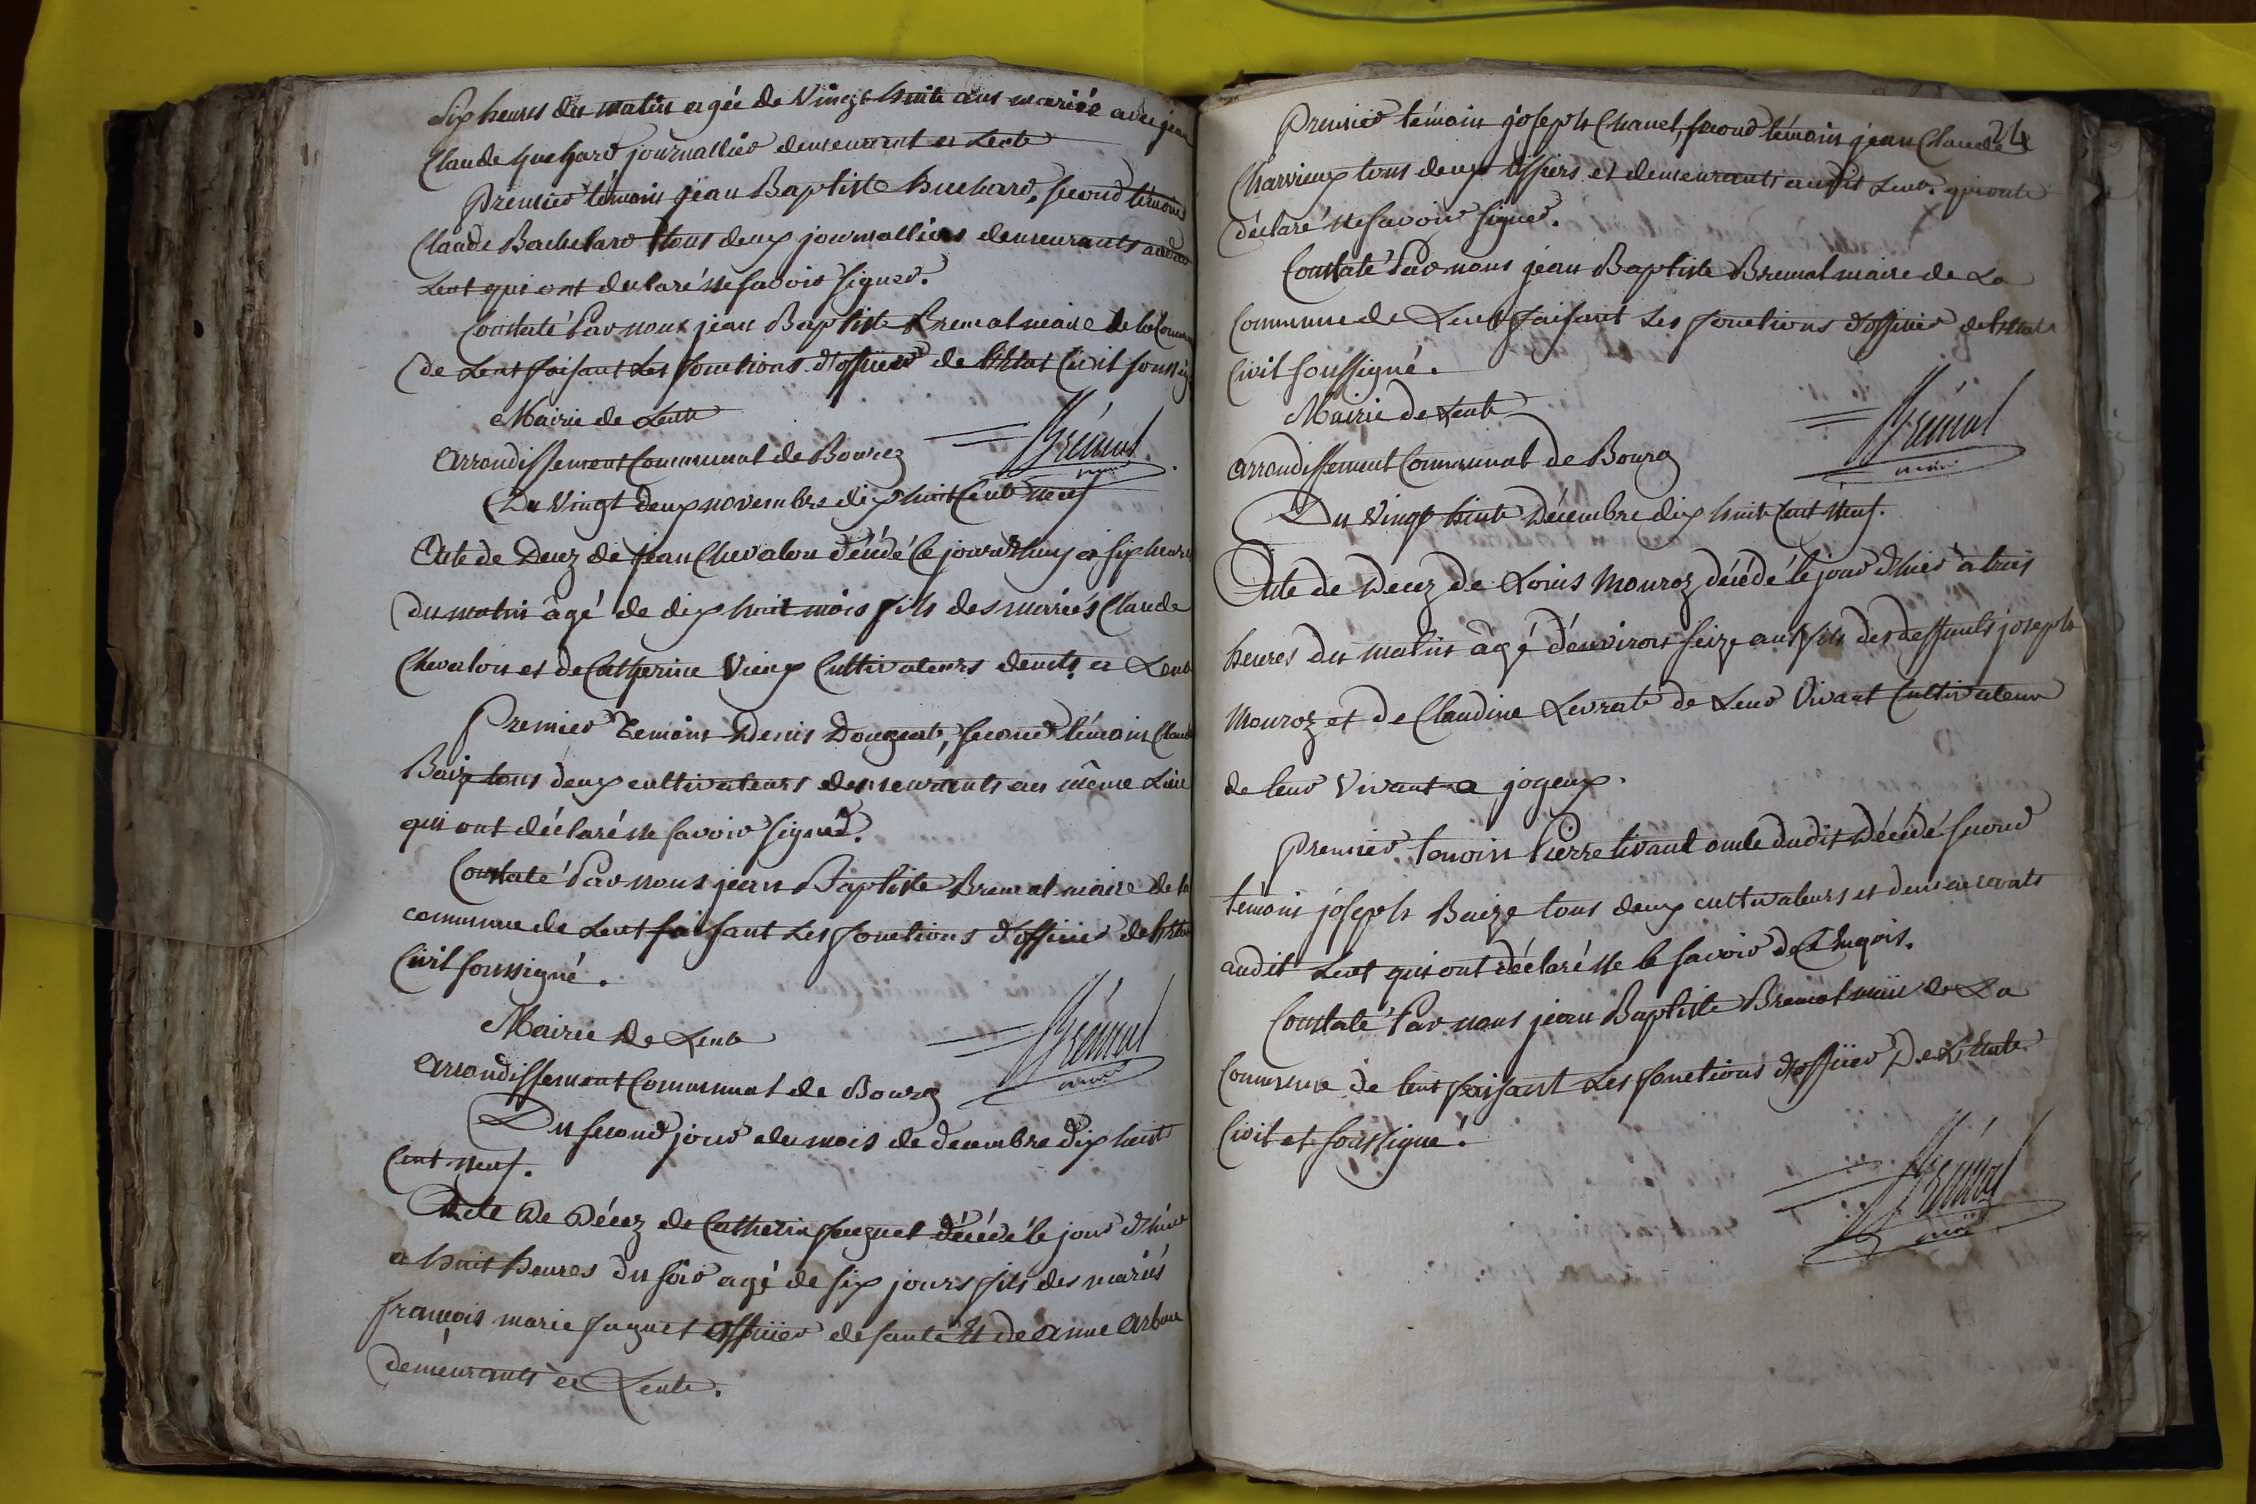 Six heures du matin agée de Vingt huit ans mariée avec jean
Claude huchard journallier demeurant a Lent
Premier témoin jean Baptiste huchard, second témoin
Claude Bachelard tous deux journalliers demeurants audit
Lent qui ont déclaré ne savoir signer.
Constaté Par nous jean Baptiste Bremal maire de la Commune
de Lent faisant Les fonctions d'officier de l'Etat Civil soussigné
Mairie de Lent
Brémal
maire
Arrondissement Communal de Bourg
Du Vingt deux novembre dix huit Cent neuf
Acte de Decez de jean Chevalon décédé Ce jourd'huy a six heures
du matin âgé de dix huit mois fils des mariés Claude
Chevalon et de Catherine Vieux Cultivateurs demts a Lent
Premier Temoin Denis Dougeat, second témoin Claude
Baize tous deux cultivateurs demeurants au même Lieu
qui ont déclaré ne savoir signer.
Constaté Par nous jean Baptiste Bremal maire de la
commune de Lent faisant Les fonctions d'officier de l'Etat
Civil soussigné.
Mairie De Lent
Brémal
maire
Arrondissement Communal de Bourg
Du second jour du mois de decembre dix huit
Cent neuf.
Acte De Décez de Catherin faguet décédé le jour d'hier
a huit heures du soir agé de six jours fils des mariés
françois marie faguet officier de santé Et de anne
demeurants a Lent.
24
Premier témoin joseph Chanel, second témoin jean Claude
Charvieux tous deux tissiers et demeurants audit Lent qui ont
déclaré ne savoir signer.
Constaté Par nous jean Baptiste Bremal maire de La
Commune de Lent faisant Les fonctions d'officier de l'Etat
Civil soussigné.
Mairie de Lent
Brémal
maire
Arrondissement Communal de Bourg
Du Vingt huit Décembre dix huit Cent neuf.
Acte de Decez de Louis Mouroz décédé le jour d'hier à trois
heures du matin âgé d'environ seize ans fils des deffunts joseph
Mouroz et de Claudine Levrat de Leur Vivant Cultivateur
de leur Vivant a joyeux.
Premier témoin Pierre livant oncle dudit Décédé second
témoin joseph Baize tous deux cultivateurs et demeurants
audit Lent qui ont déclaré ne le savoir de Ce Enquis.
Constaté Par nous jean Baptiste Bremal maire de La
Commune de lent faisant Les fonctions d'officier De L'Etat
Civil et soussigné.
Brémal
maire